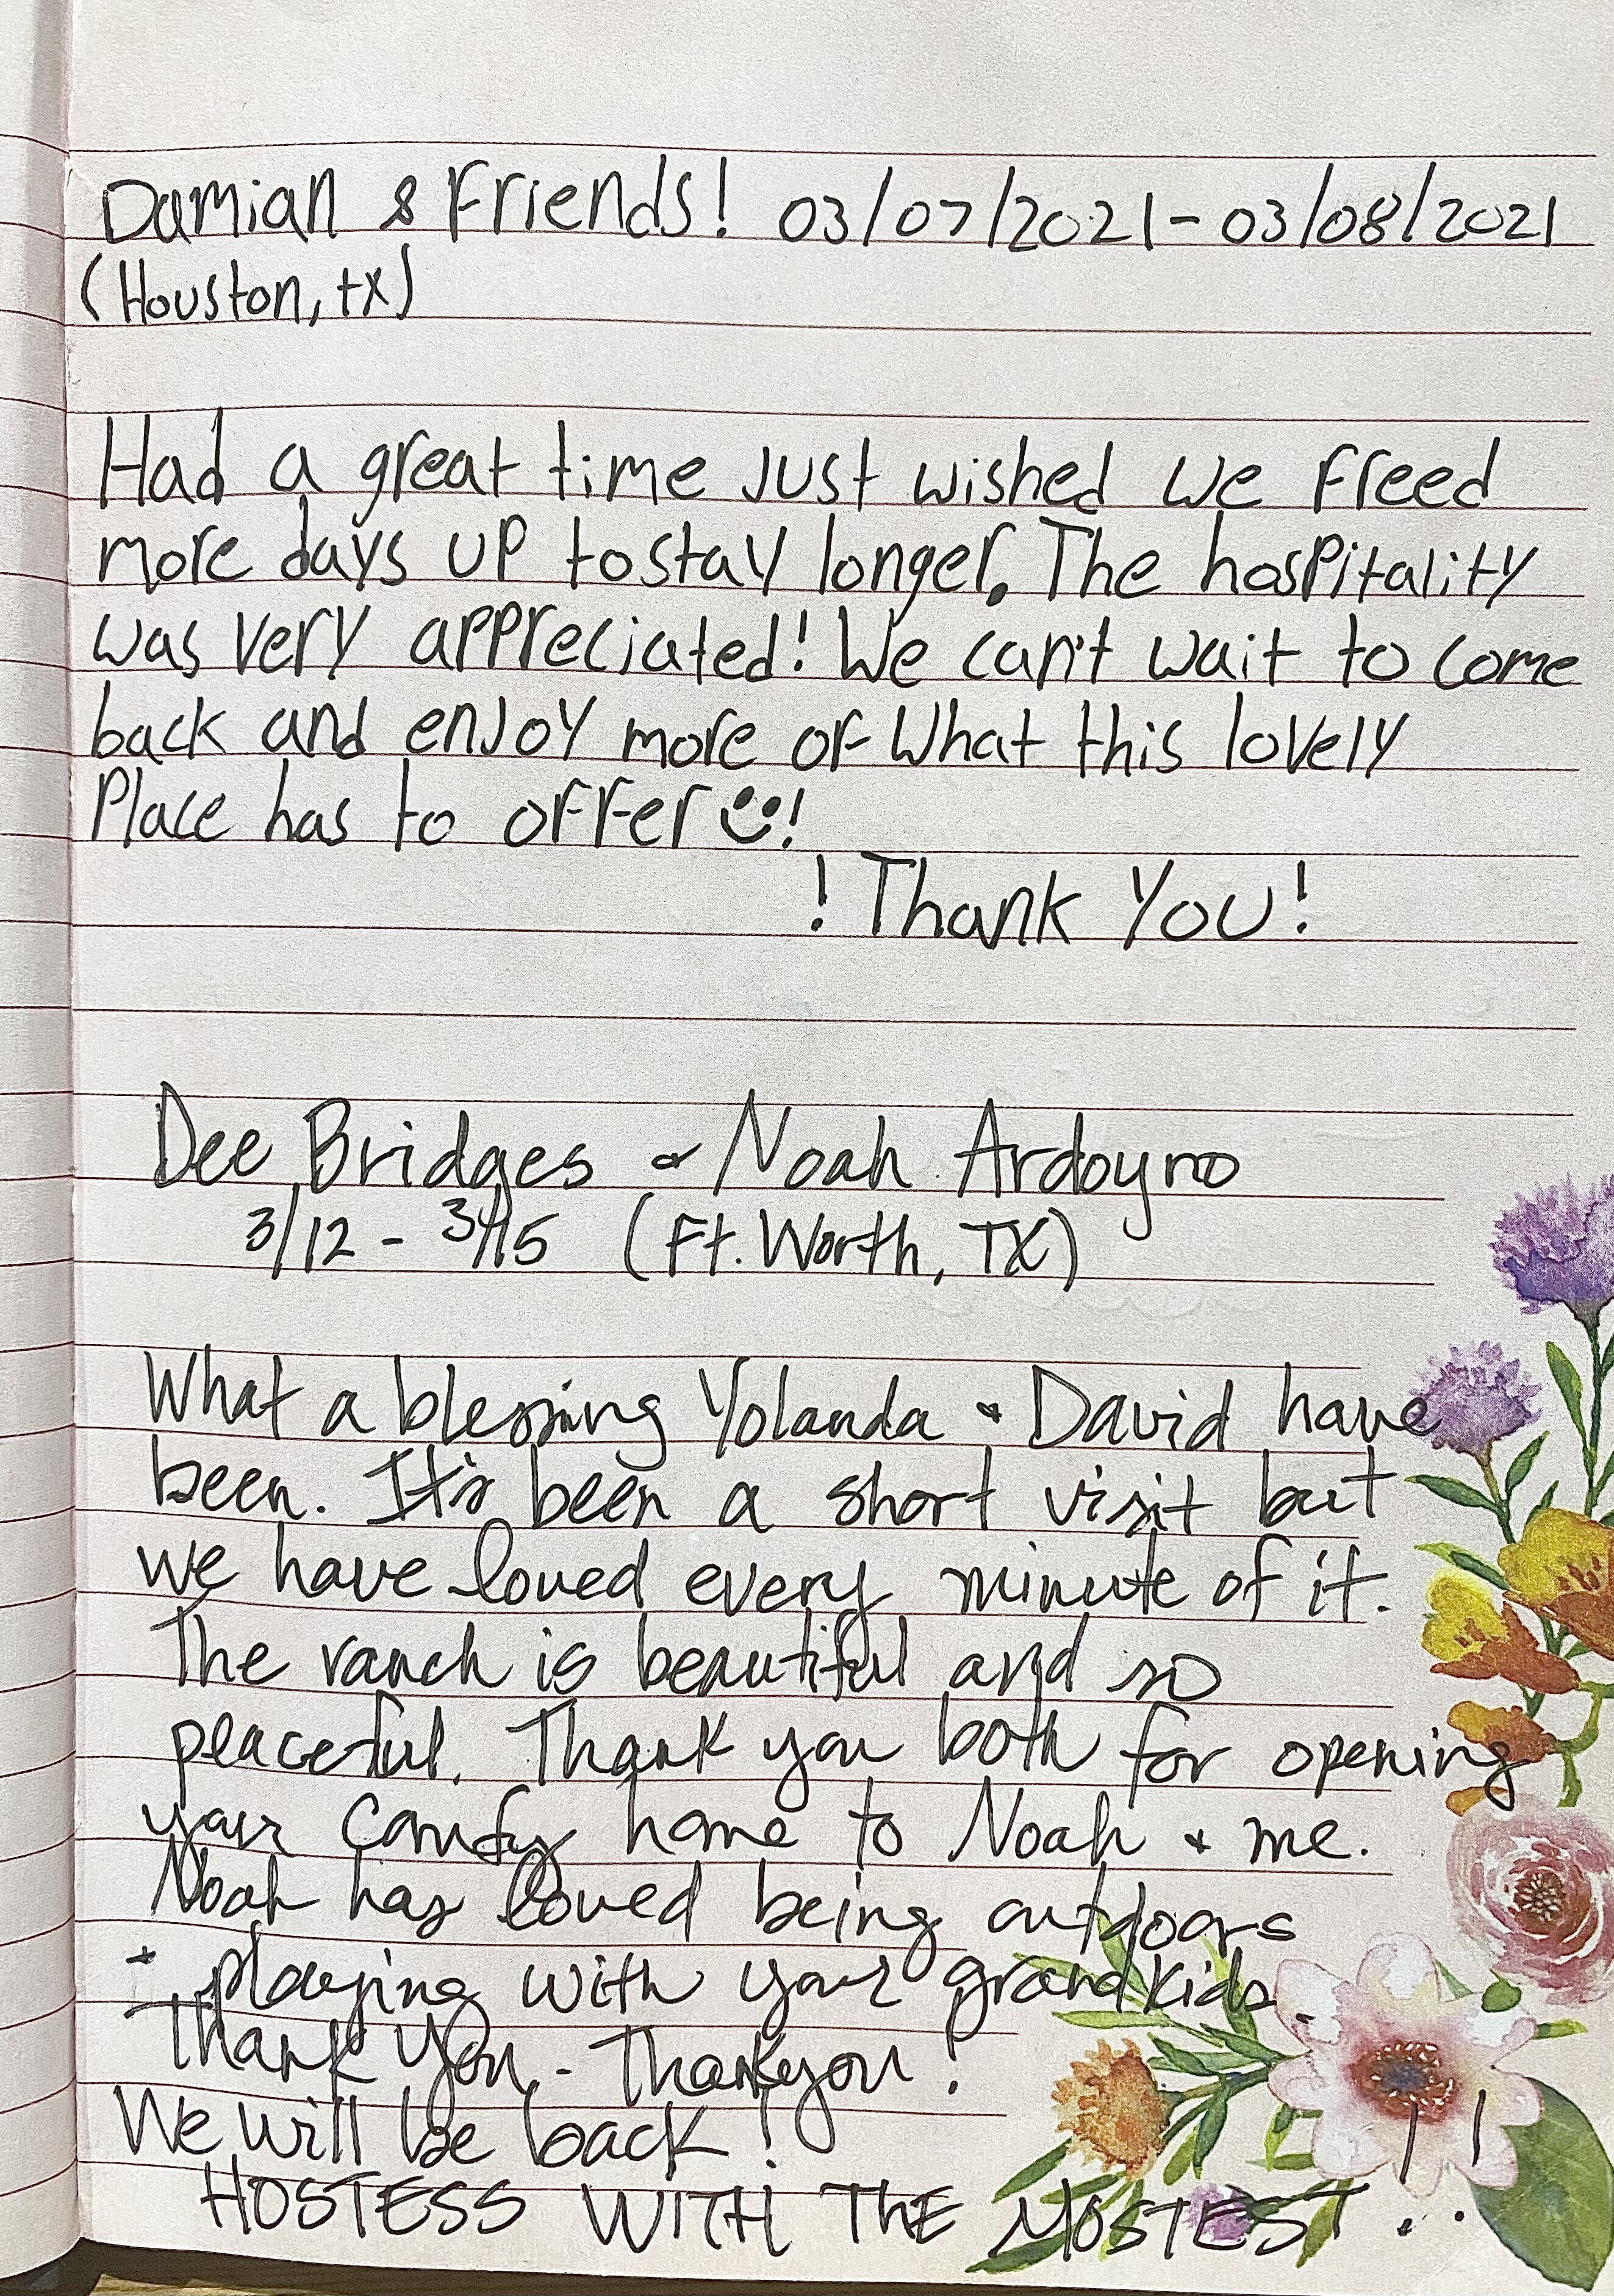 Damian & Friends! 03/07/2021 - 03/08/2021
(Houston, tx)
Had a great time Just wished we freed
more days up to stay longer. The hospitality
was very appreciated! We can't wait to come
back and enjoy more of What this lovely
Place has to offer!
! Thank You!
Dee Bridges & Noah Ardoyno
3/12 - 3/15 (Ft. Worth, TX)
What a blessing Yolanda & David have
been. It's been a short visit but
we have loved every minute of it.
The ranch is beautiful and so
peaceful. Thank you both for opening
your comfy home to Noah & me.
Noah has loved being outdoors
+ playing with your grandkids.
Thank You - Thankyou!
We will be back!
HOSTESS WITH THE MOSTEST!!